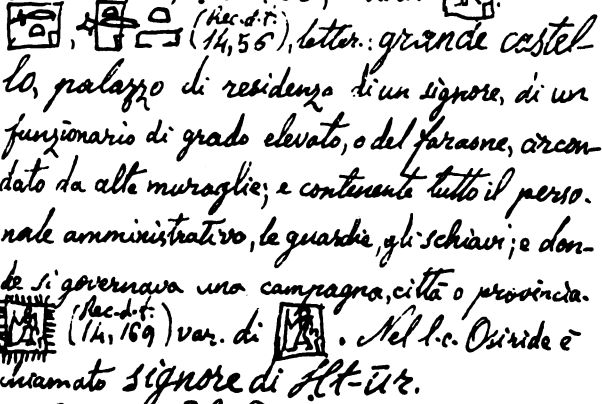 (Rec. d. t. 14,56), letter.: grande castel-
lo, palazzo di residenza di un signore, di un
funzionario di grado elevato, o del faraone, circon-
dato da alte muraglie; e contenente tutto il perso-
nale amministrativo, le guardie, gli schiavi; e don-
de si governava una campagna, città o provincia.
(Rec. d. t. 14,169) var. di . Nel l.c. Osiride è
chiamato signore di Ḥt-ūr.